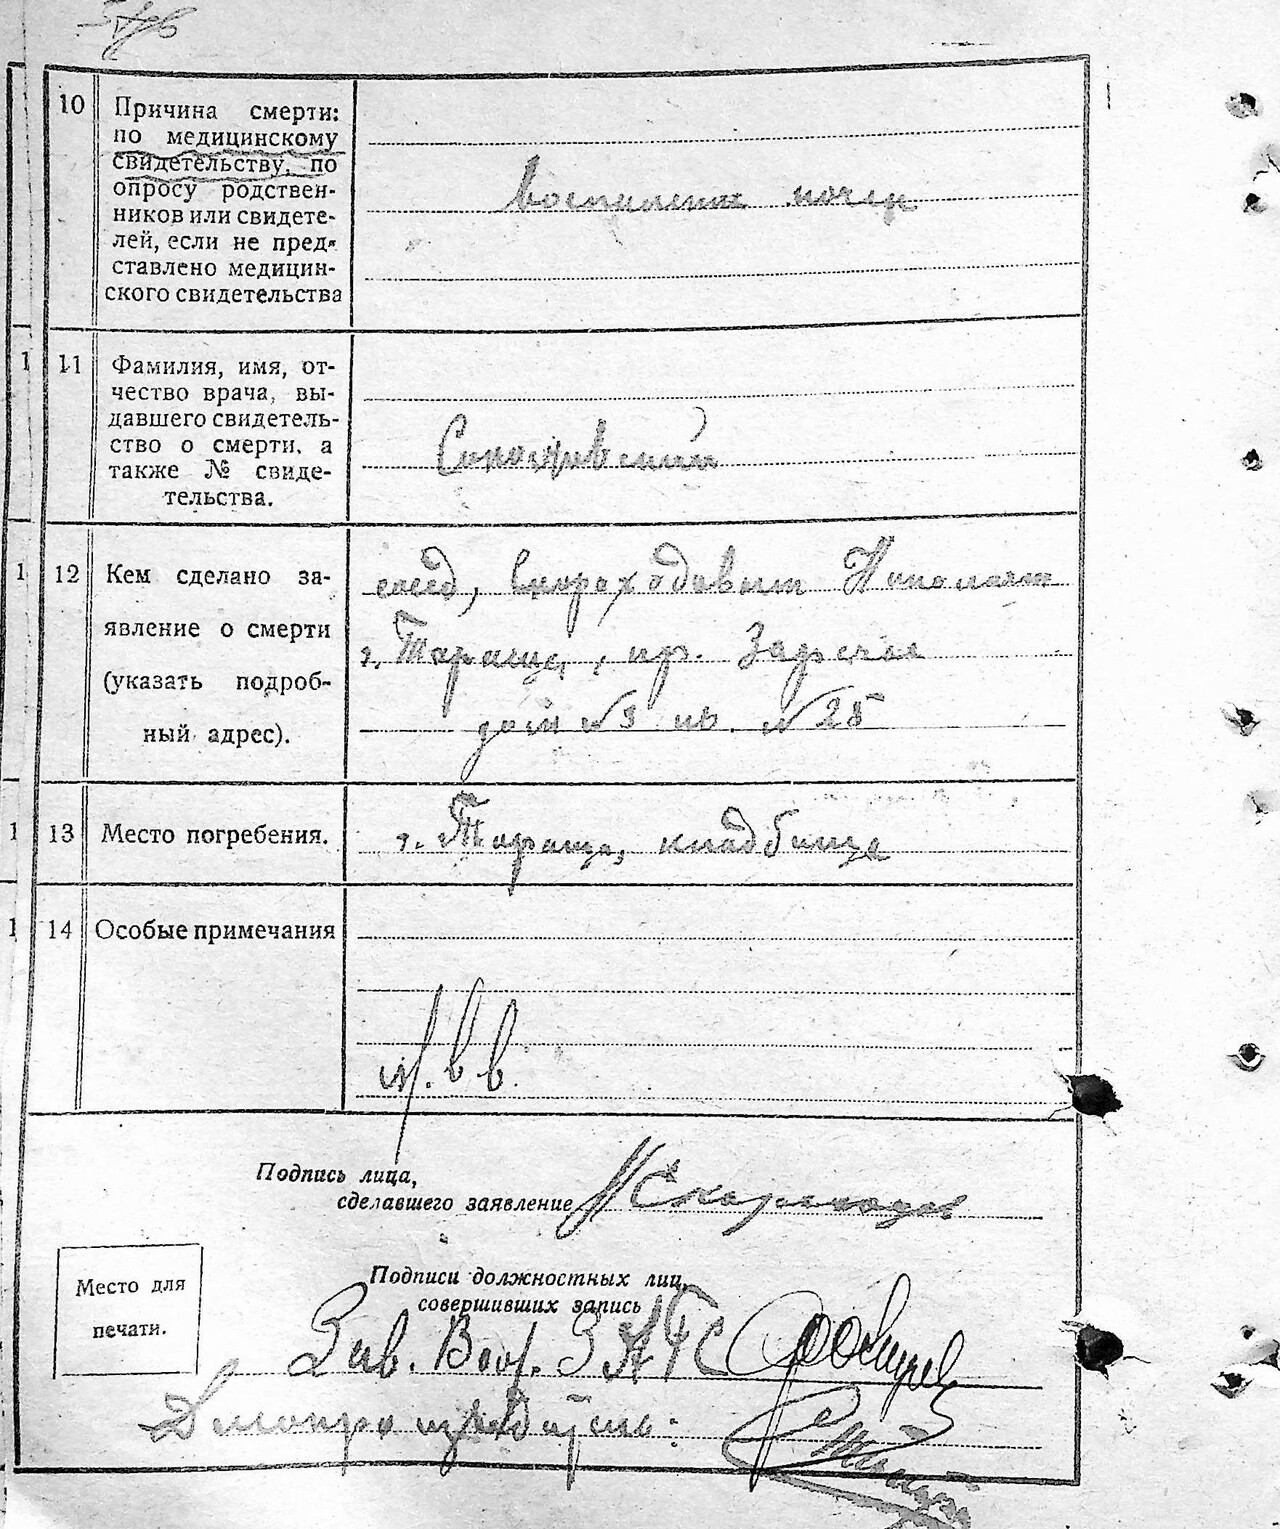 10 Причина смерти:
по медицинскому
свидетельству, по
опросу родствен-
ников или свидете-
лей, если не пред-
ставлено медицин-
ского свидетельства
воспаление почек
1 11 Фамилия, имя, от-
чество врача, вы-
давшего свидетель-
ство о смерти, а
также № свиде-
тельства.
1 12 Кем сделано за-
явление о смерти
(указать подроб-
ный адрес).
сосед, Скороходовым Николаем
г. Тараща, пр. Заречая
дом №3 кв. №25
1 13 Место погребения.
г. Тараща, кладбище
1 14 Особые примечания
Подпись лица,
сделавшего заявление Скороходов
Подписи должностных лиц,
совершивших запись
Место для
печати.
Зав. Бюр. ЗАГС
Делопроизводитель: